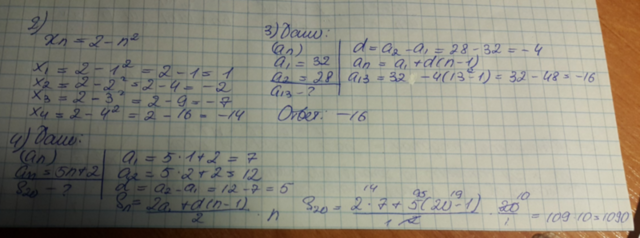 2)
xn = 2 - n²
x1 = 2 - 1² = 2 - 1 = 1
x2 = 2 - 2² = 2 - 4 = -2
x3 = 2 - 3² = 2 - 9 = -7
x4 = 2 - 4² = 2 - 16 = -14
3) Дано:
(an)
a1 = 32
a2 = 28
a13 - ?
d = a2 - a1 = 28 - 32 = -4
an = a1 + d(n-1)
a13 = 32 - 4(13-1) = 32 - 48 = -16
Ответ: -16
4) Дано:
(an)
an = 5n+2
S20 - ?
a1 = 5·1+2 = 7
a2 = 5·2+2 = 12
d = a2 - a1 = 12 - 7 = 5
Sn = 2a1 + d(n-1) / 2 · n
S20 = 2·7 + 5(20-1) / 2 · 20 / 1 = 109·10 = 1090
14 95 19 10
1